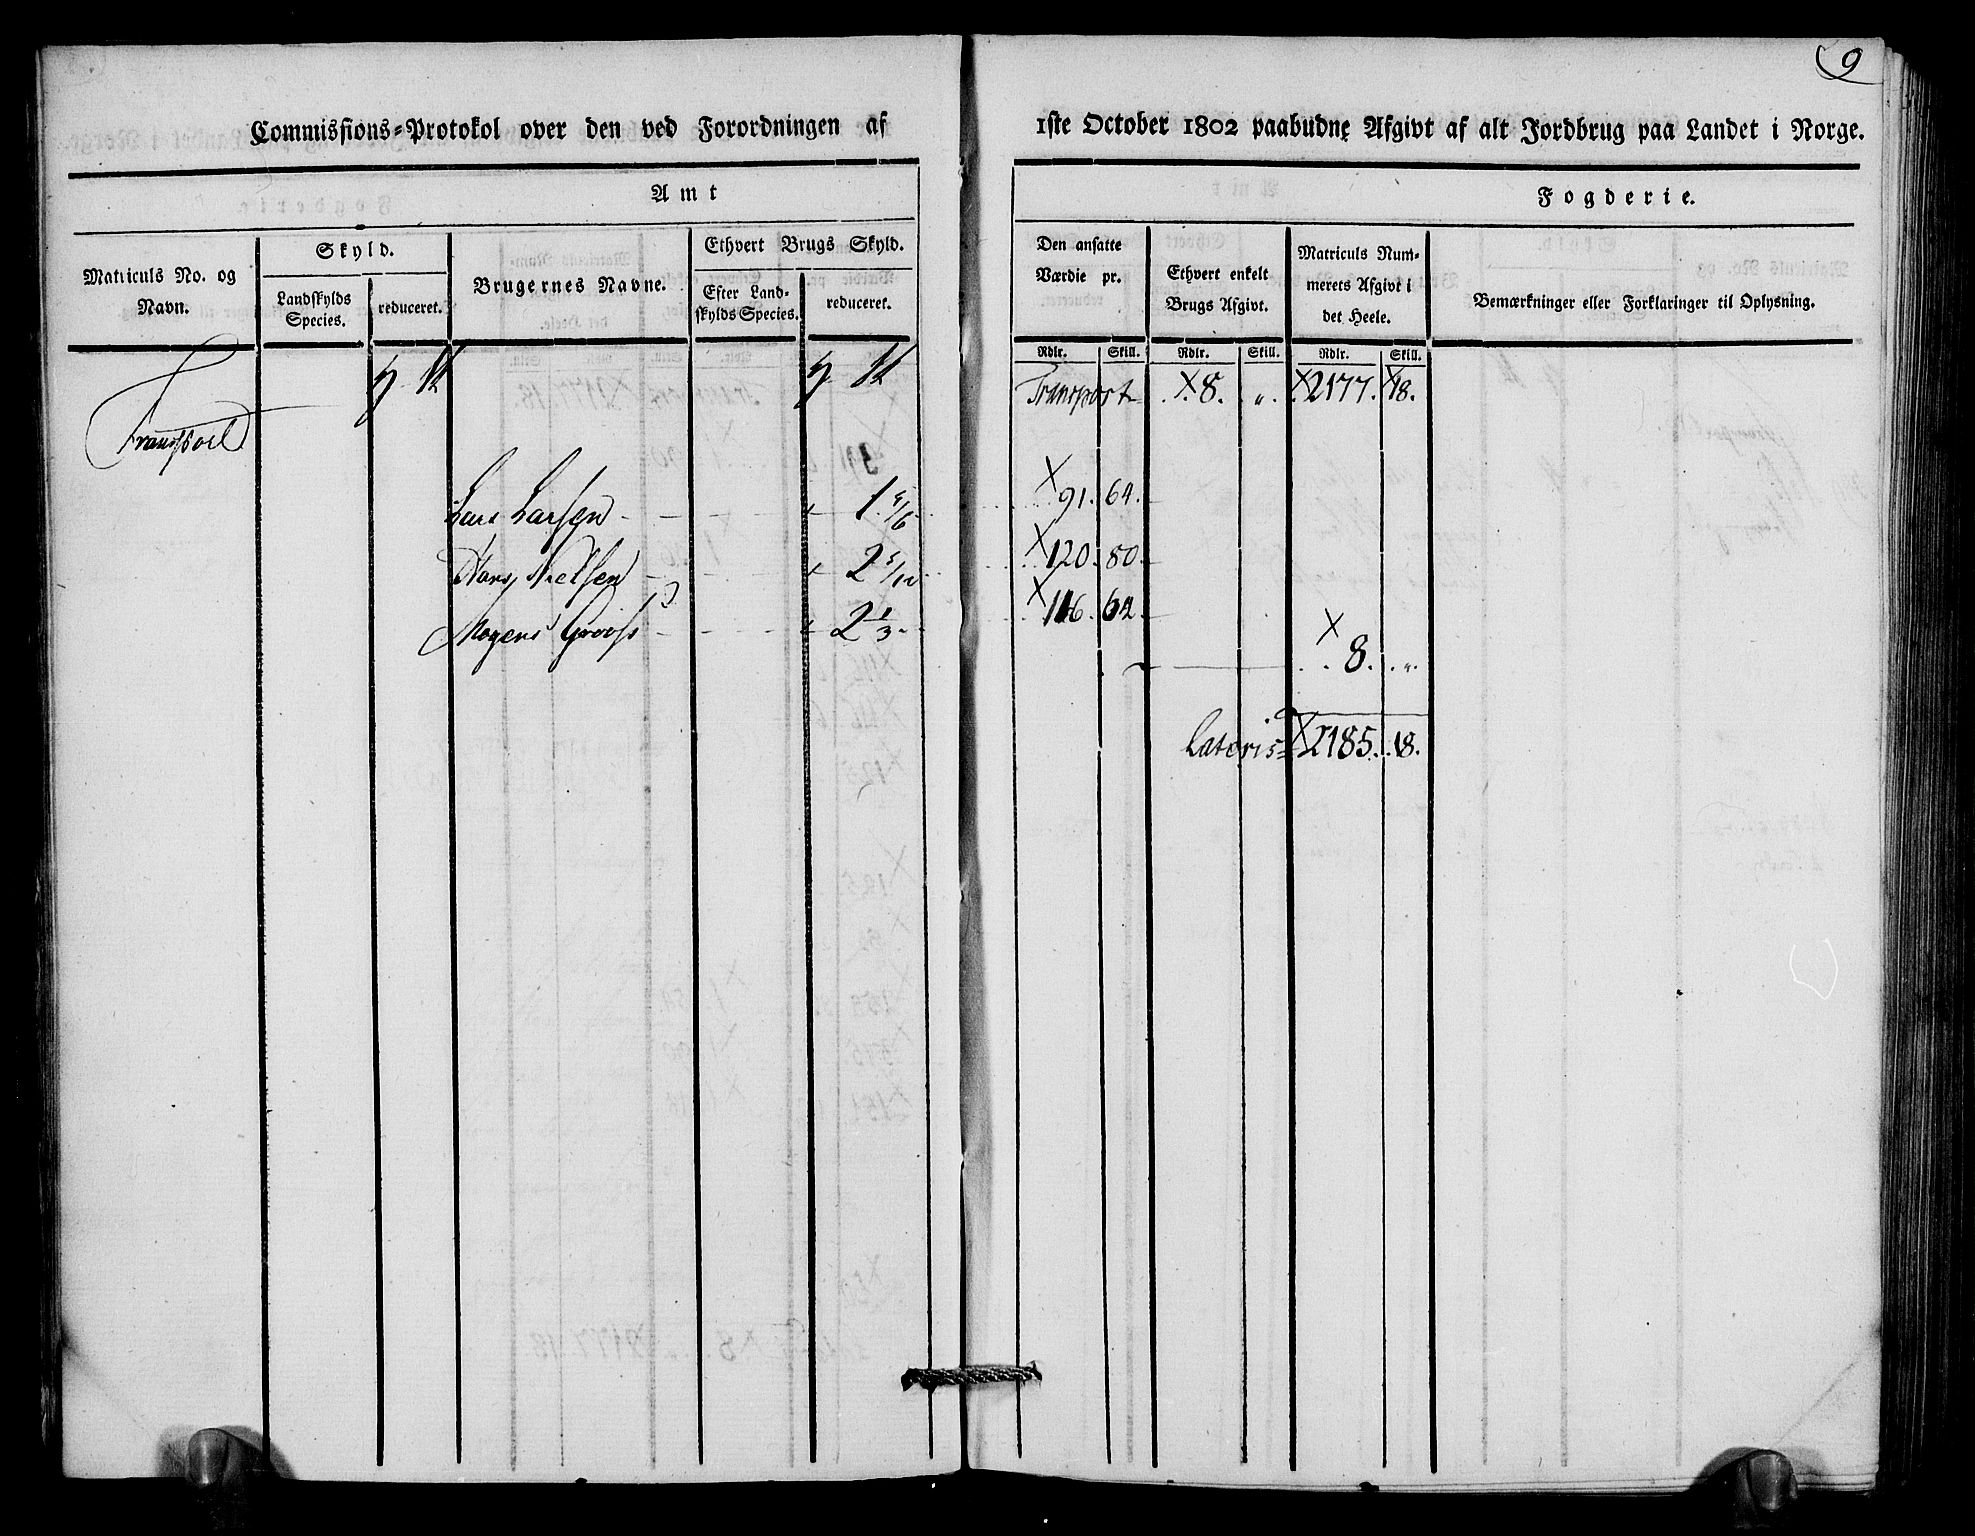 9
Commissions-Protokol over den ved Forordningen af 1ste October 1802 paabudne Afgivt af alt Jordbrug paa Landet i Norge.
Amt
Fogderie.
Matriculs No. og Navn.
Skyld.
Landskylds Species.
reduceret.
Brugernes Navne.
Ethvert Brugs Skyld.
Efter Landskylds Species.
reduceret.
Den ansatte Værdie pr.
Ethvert enkelt Brugs Afgivt.
Matriculs Nummerets Afgivt i det Heele.
Bemærkninger eller Forklaringer til Oplysning.
Rdlr. Skill. Rdlr. Skill. Rdlr. Skill.
Transport
Transport X 8. „. X 2177. X 18.
Lars Larsen 1 5/6 X 91. 64.
Hans Nielsen 2 5/12 X 120. 80.
Mogens 2 1/3 X 116. 64.
X 8. „.
Lateris X 2185. 18.